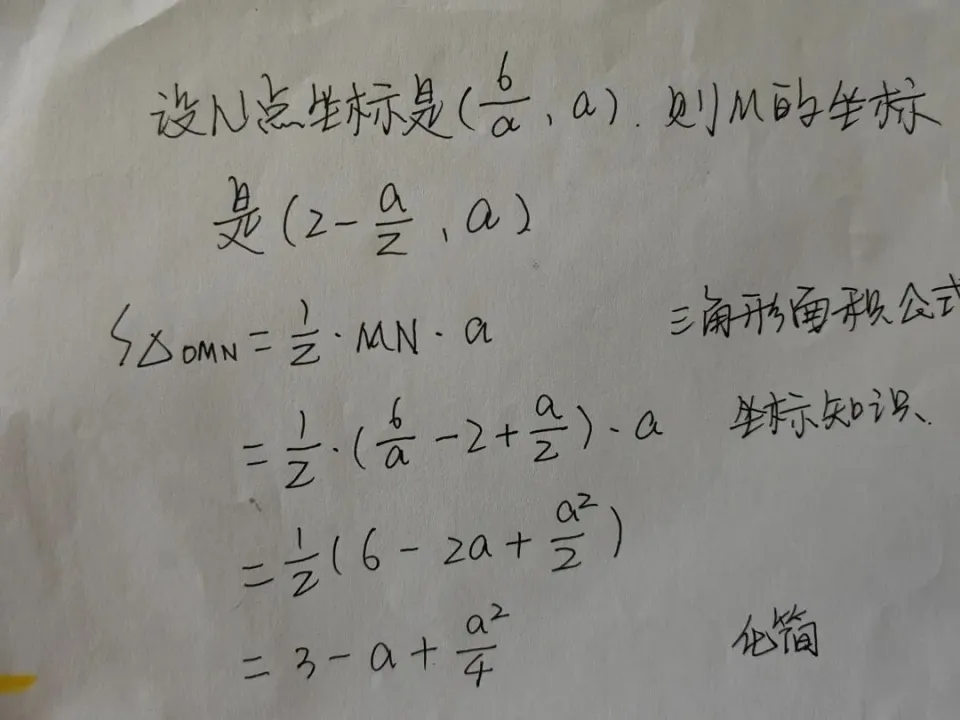 设N点坐标是(6/a, a). 则M的坐标
是(2-a/2, a)
S△OMN = 1/2·MN·a 三角形面积公式
= 1/2·(6/a-2+a/2)·a 坐标知识.
= 1/2(6-2a+a²/2)
= 3-a+a²/4 化简